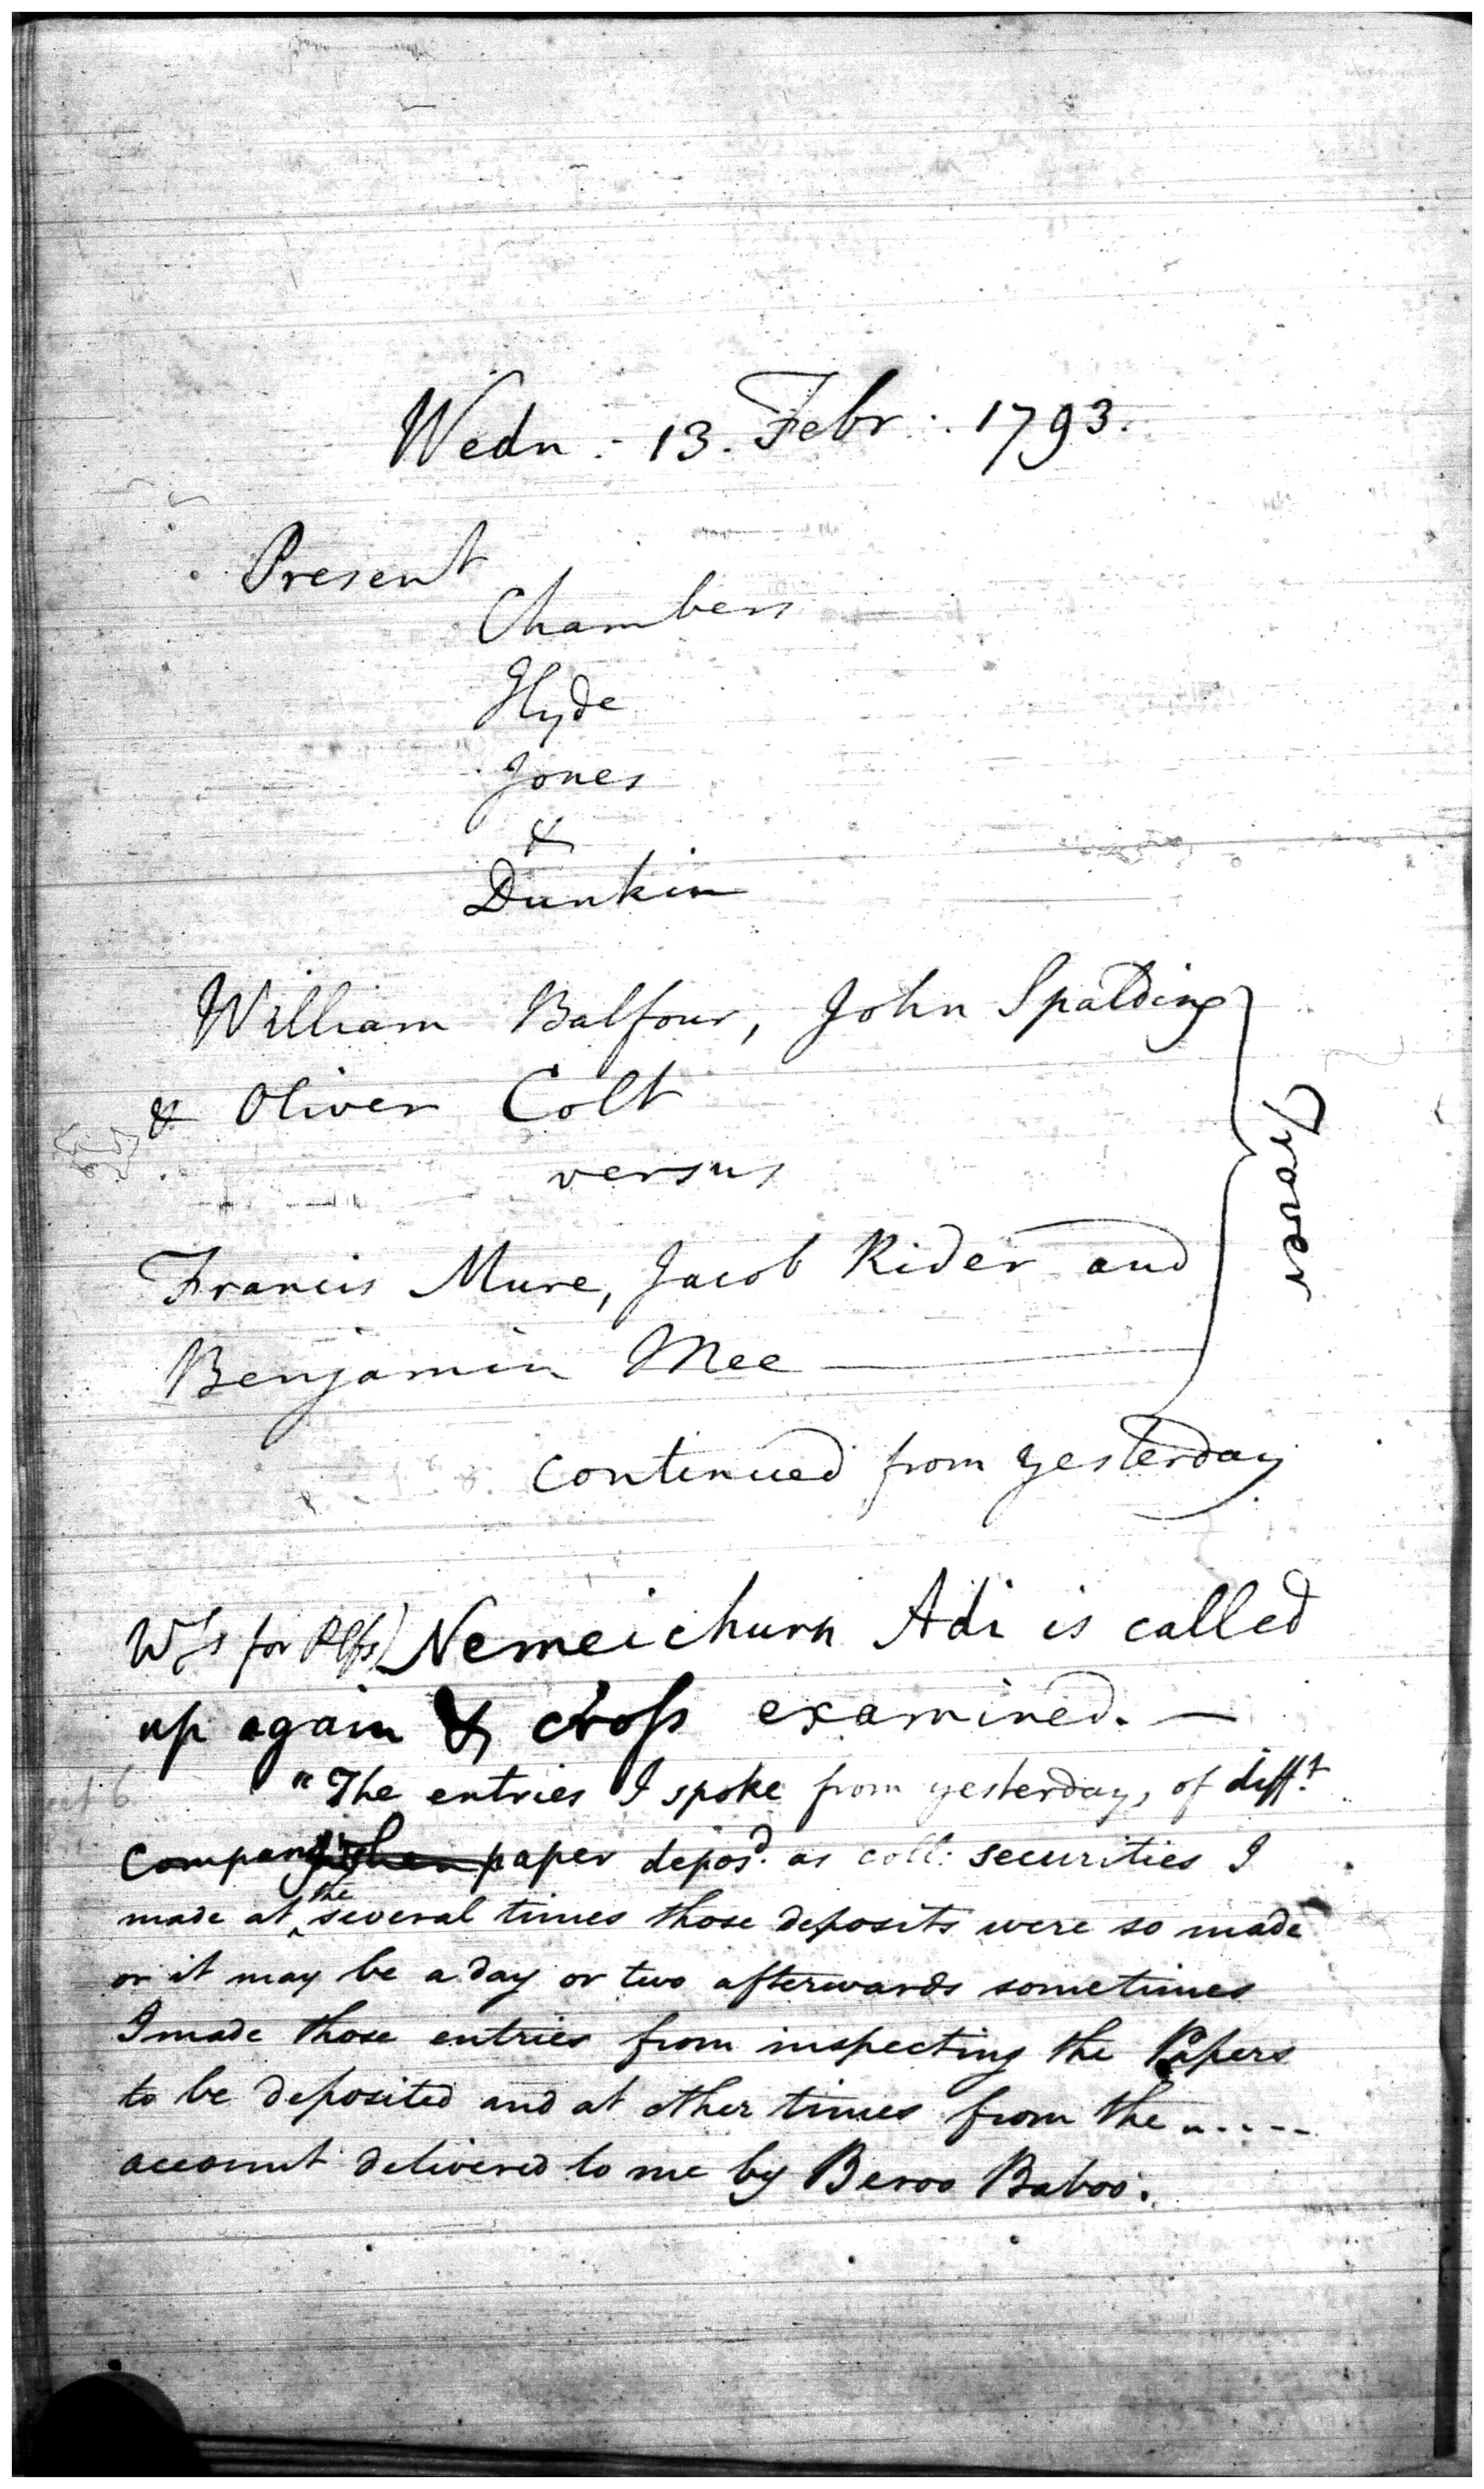 Wedn: 13. Febr: 1793.
Present
Chambers
Hyde
Jones
&
Dunkin
William Balfour, John Spalding
& Oliver Colt
versus
Francis Mure, Jacob Rider and
Benjamin Mee
Trover
continued from yesterday
Wss for Plfs) Nemeichurn Adi is called
up again & cross examined. —
"The entries I spoke from yesterday, of difft
Company's paper deposd. as coll: securities I
made at the several times those deposits were so made
or it may be a day or two afterwards sometimes
I made those entries from inspecting the Papers
to be deposited and at other times from the -----
account delivered to me by Beroo Baboo.